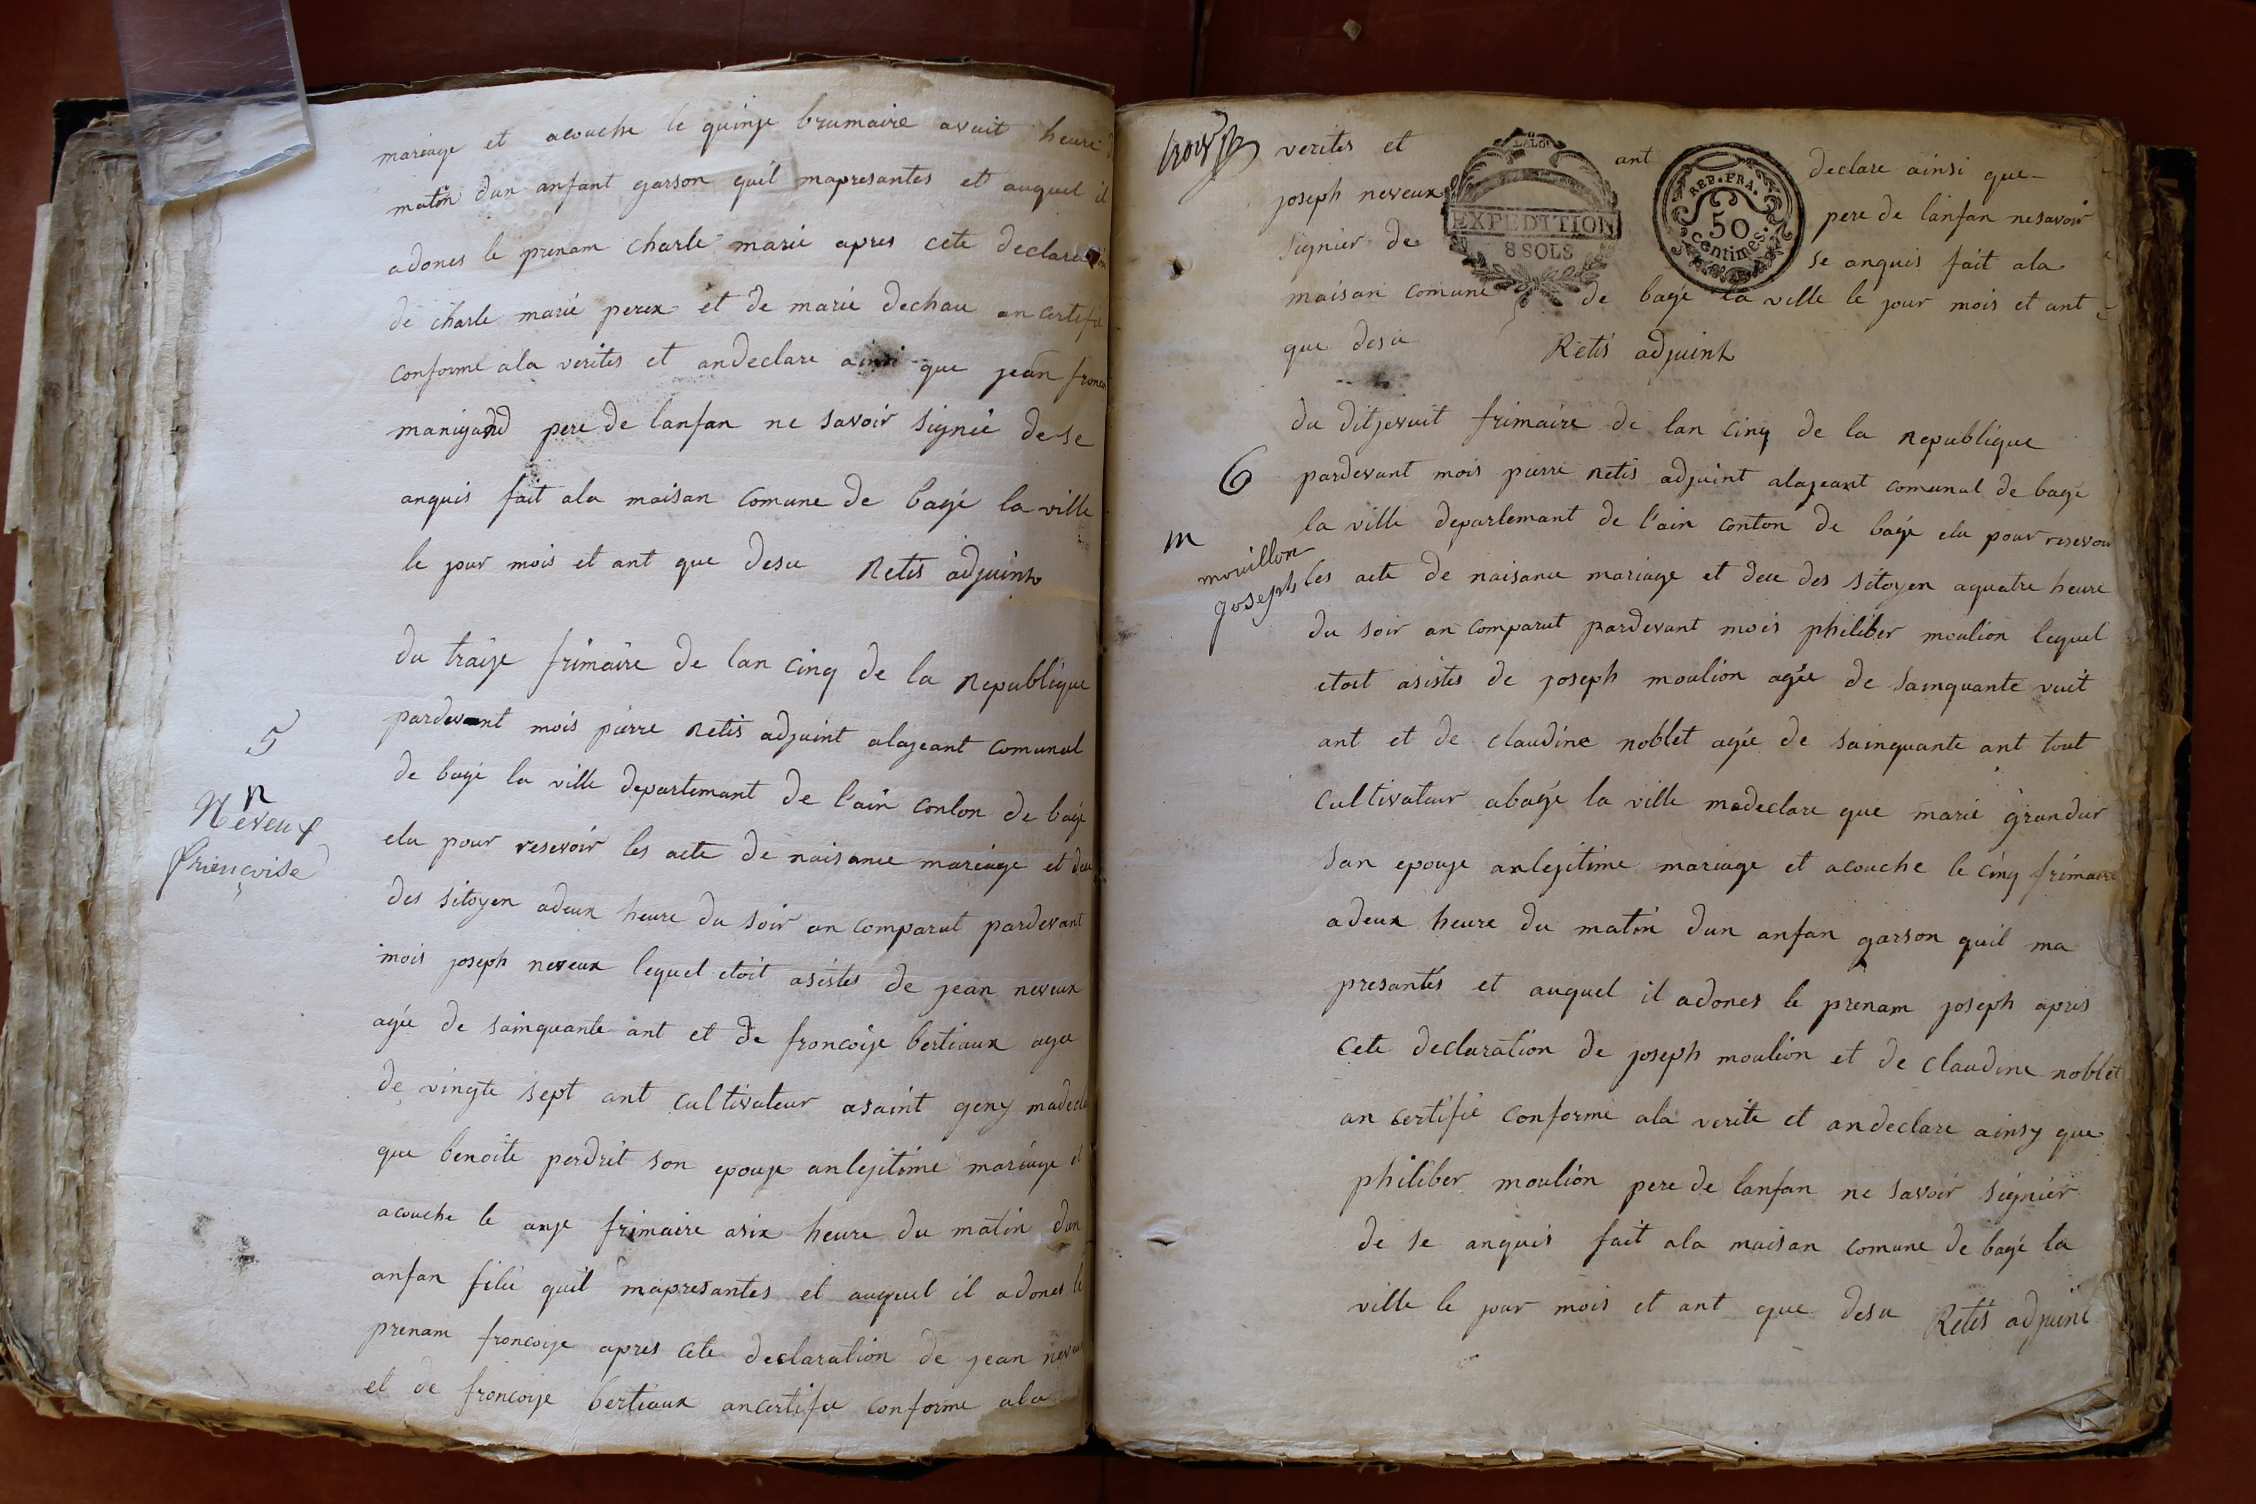 mariage et acouche le quinze brumaire avuit heure
matin dun anfant garson quil mapresantes et auquel il
adones le prenam charle marie apres cete declaration
de charle marie perex et de marie dechau an certifie
conforme ala verites et andeclare ainsi que jean francoi
manigand pere de lanfan ne savoir signié de se
anquis fait ala maisan comune de bagé la ville
le jour mois et ant que desu Retis adjuint
5
n
Neveux
françoise
du traize frimaire de lan cinq de la Republique
pardevant mois pierre Retis adjuint alajeant comunal
de bagé la ville departemant de l'ain conton de bagé
elu pour resevoir les acte de naisance mariage et dece
des sitoyen adeux heure du soir an comparut pardevant
mois joseph neveux lequel etoit asistés de jean neveux
agée de sainquante ant et de froncoije bertiaux agee
de vingte sept ant cultivateur asaint geny madecla
que benoite perdrit son epouje anlejitime mariage et
acouche le anje frimaire asix heure du matin dun
anfan filie quil mapresantes et auquel il adones le
prenam froncoije apres cete declaration de jean neveu
et de froncoije bertiaux ancertifie conforme ala
verites et ant declare ainsi que
joseph neveux pere de lanfan ne savoir
signier de se anquis fait ala
LALO
EXPEDITION
8 SOLS
REP. FRA.
50
centimes.
maisan comune de bagé la ville le jour mois et ant
que desu Retis adjuint
6
m
mouillon
joseph
du ditjevuit frimaire de lan cinq de la Republique
pardevant mois pierre Retis adjuint alajeant comunal de bagé
la ville departemant de l'ain conton de bagé elu pour resevoir
les acte de naisance mariage et dece des sitoyen aquatre heure
du soir an comparut pardevant mois philiber moulion lequel
etoit asistés de joseph moulion agée de sainquante vuit
ant et de claudine noblet agée de sainquante ant tout
cultivateur abagé la ville madeclare que marie grandur
san epouje anlejitime mariage et acouche le cinq frimaire
adeux heure du matin dun anfan garson quil ma
presantés et auquel il adones le prenam joseph apres
cete declaration de joseph moulion et de claudine noblet
an certifié conforme ala verite et andeclare ainsy que
philiber moulion pere de lanfan ne savoir signier
de se anquis fait ala maisan comune de bagé la
ville le jour mois et ant que desu Retis adjuint